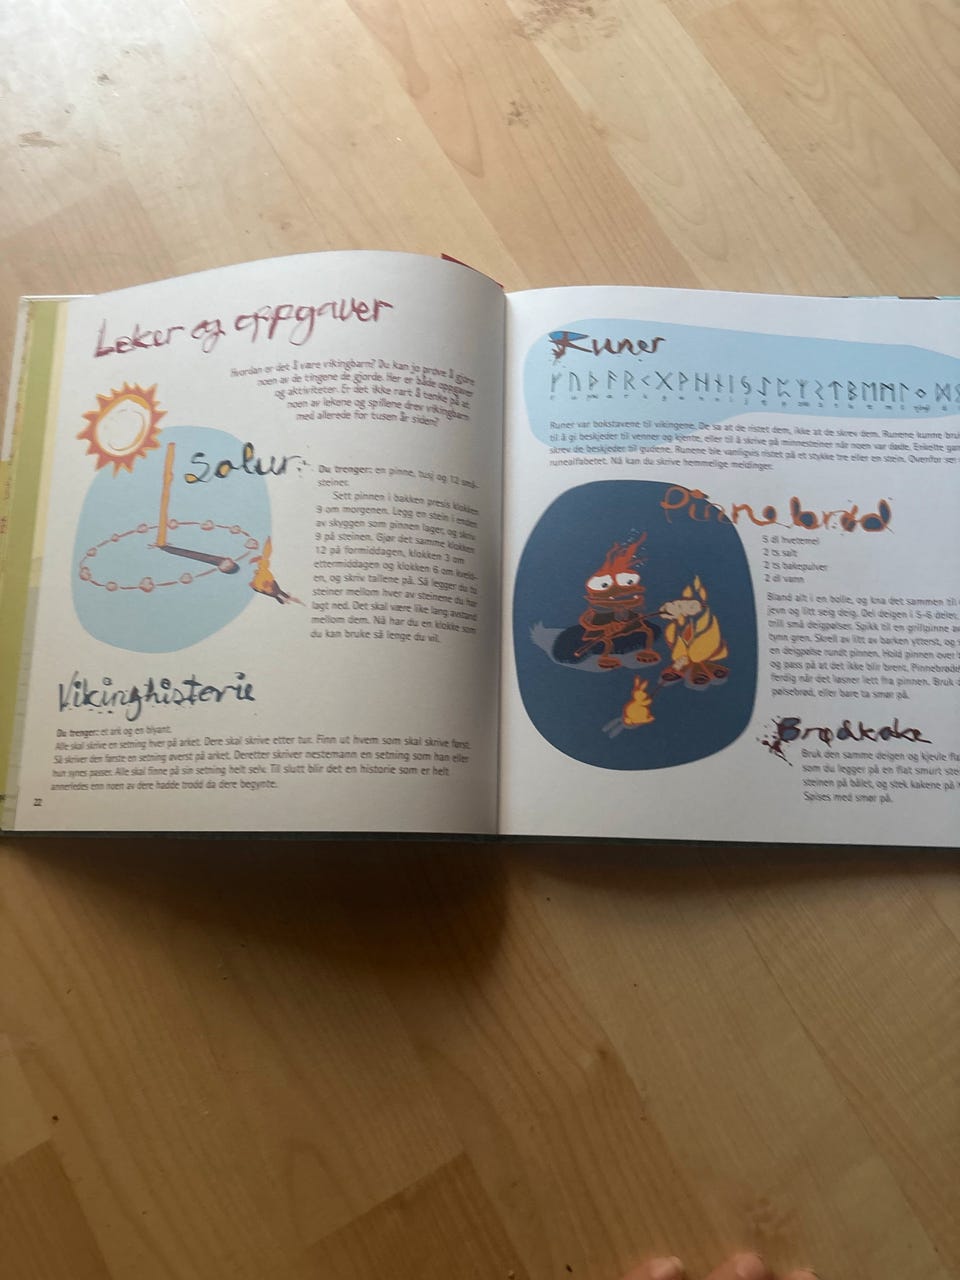 Leker og oppgaver
Hvordan er det å være vikingbarn? Du kan jo prøve å gjøre
noen av de tingene de gjorde. Her er både oppgaver
og aktiviteter. Er det ikke rart å tenke på at
noen av lekene og spillene drev vikingbarn
med allerede for tusen år siden?
Solur
Du trenger: en pinne, tusj og 12 små-
steiner.
Sett pinnen i bakken presis klokken
9 om morgenen. Legg en stein i enden
av skyggen som pinnen lager, og skriv
9 på steinen. Gjør det samme klokken
12 på formiddagen, klokken 3 om
ettermiddagen og klokken 6 om kveld-
en, og skriv tallene på. Så legger du to
steiner mellom hver av steinene du har
lagt ned. Det skal være like lang avstand
mellom dem. Nå har du en klokke som
du kan bruke så lenge du vil.
Vikinghistorie
Du trenger: et ark og en blyant.
Alle skal skrive en setning hver på arket. Dere skal skrive etter tur. Finn ut hvem som skal skrive først.
Så skriver den første en setning øverst på arket. Deretter skriver nestemann en setning som han eller
hun synes passer. Alle skal finne på sin setning helt selv. Til slutt blir det en historie som er helt
annerledes enn noen av dere hadde trodd da dere begynte.
22
Runer
Runer var bokstavene til vikingene. De sa at de ristet dem, ikke at de skrev dem. Runene kunne
til å gi beskjeder til venner og kjente, eller til å skrive på minnesteiner når noen var døde. Enkelte
skrev de beskjeder til gudene. Runene ble vanligvis ristet på et stykke tre eller en stein. Ovenfor ser
runealfabetet. Nå kan du skrive hemmelige meldinger.
Pinnebrød
5 dl hvetemel
2 ts salt
2 ts bakepulver
2 dl vann
Bland alt i en bolle, og kna det sammen til
jevn og litt seig deig. Del deigen i 5–6 deler,
trill små deigpølser. Spikk til en grillpinne av
tynn gren. Skrell av litt av barken ytterst, og
en deigpølse rundt pinnen. Hold pinnen over
og pass på at det ikke blir brent. Pinnebrødet
ferdig når det løsner lett fra pinnen. Bruk
pølsebrød, eller bare ta smør på.
Brødkake
Bruk den samme deigen og kjevle
som du legger på en flat smurt
steinen på bålet, og stek kakene på
Spises med smør på.